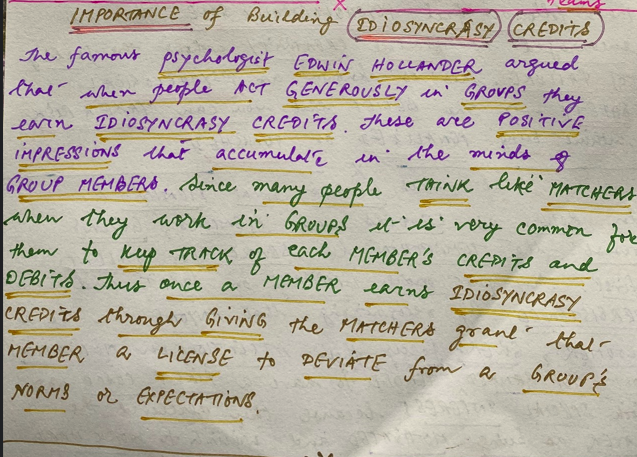 Teams
IMPORTANCE of Building IDIOSYNCRASY CREDITS
The famous psychologist EDWIN HOLLANDER argued
that when people ACT GENEROUSLY in GROUPS they
earn IDIOSYNCRASY CREDITS. These are POSITIVE
IMPRESSIONS that accumulate in the minds of
GROUP MEMBERS. Since many people THINK like MATCHERS
when they work in GROUPS it is very common for
them to keep TRACK of each MEMBER'S CREDITS and
DEBITS. Thus once a MEMBER earns IDIOSYNCRASY
CREDITS through GIVING the MATCHERS grant that
MEMBER a LICENSE to DEVIATE from a GROUP'S
NORMS or EXPECTATIONS.